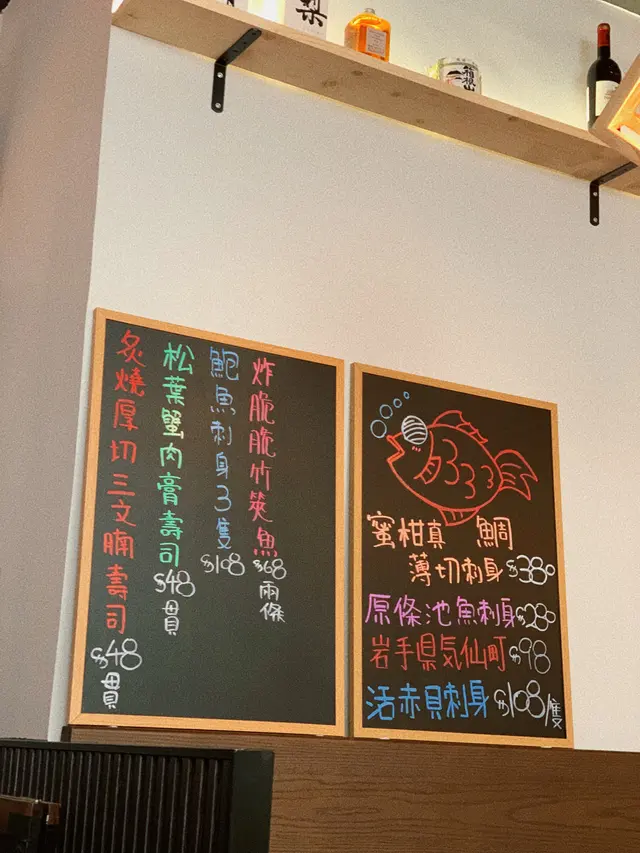 梨
箱根山
炸脆脆竹筴魚$68兩條
鮑魚刺身3隻$108
松葉蟹肉膏壽司$48貫
炙燒厚切三文腩壽司$48貫
蜜柑真鯛
薄切刺身$380
原條池魚刺身$280
岩手県気仙町$98
活赤貝刺身$108/隻